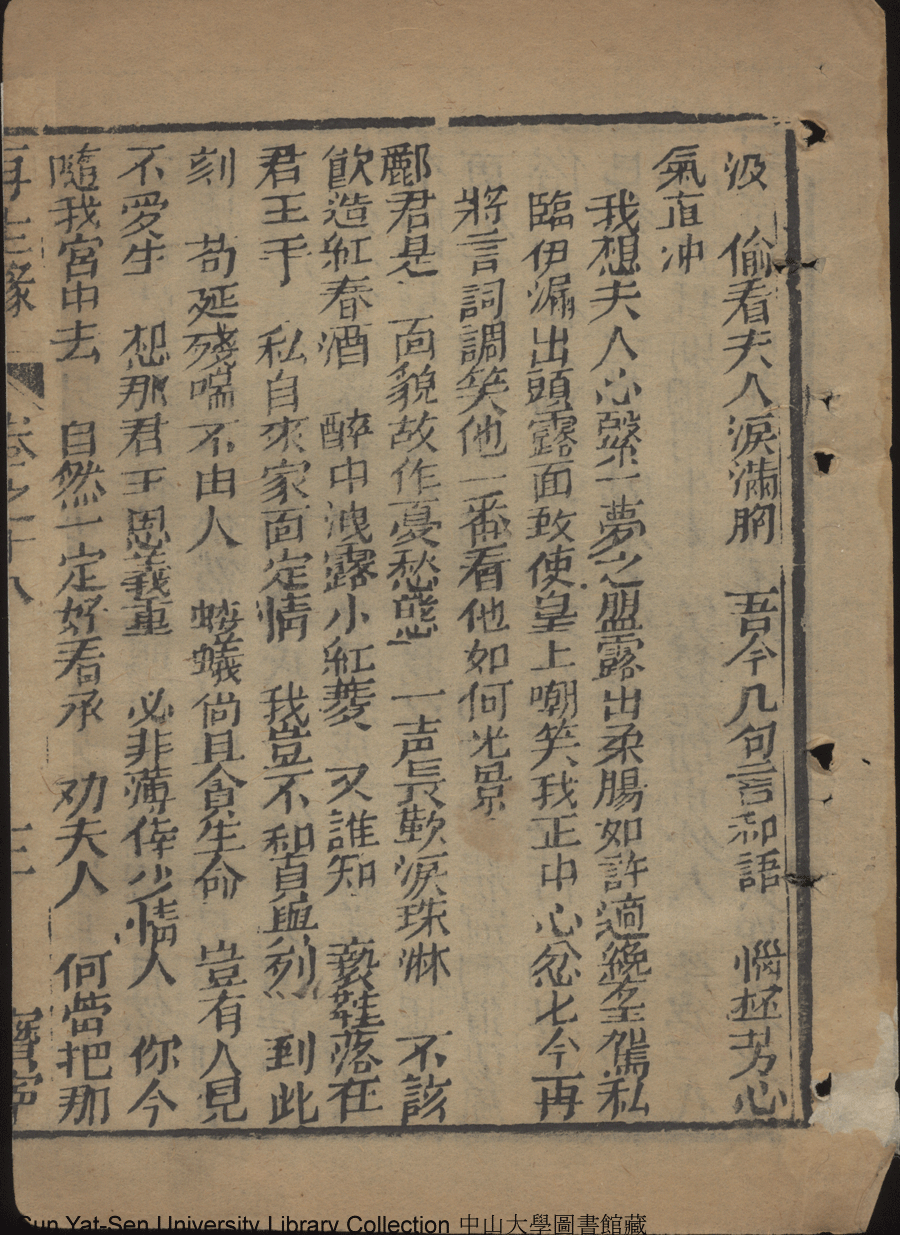 汲　偷看夫人淚滿胸　吾今几句言和語　惱㧪芳心
氣直冲
我想夫人心繫一夢之盟露出柔腸如許適纔聖駕私
臨伊漏出頭露面致使皇上嘲笑我正中心忿七今再
將言詞調笑他一番看他如何光景
酈君是　面貌故作憂愁態　一声長歎淚珠淋　不該
飲造紅春酒　醉中洩露小紅菱　又誰知　褻鞋落在
君王手　私自來家面定情　我豈不知貞與列　到此
刻　苟延殘喘不由人　螻蟻尚且貪生命　豈有人見
不愛生　想那君王恩義重　必非薄倖少情人　你今
隨我宮中去　自然一定好看承　劝夫人　何嘗把那
再生緣　卷之十八
Sun Yat-Sen University Library Collection 中山大學圖書館藏